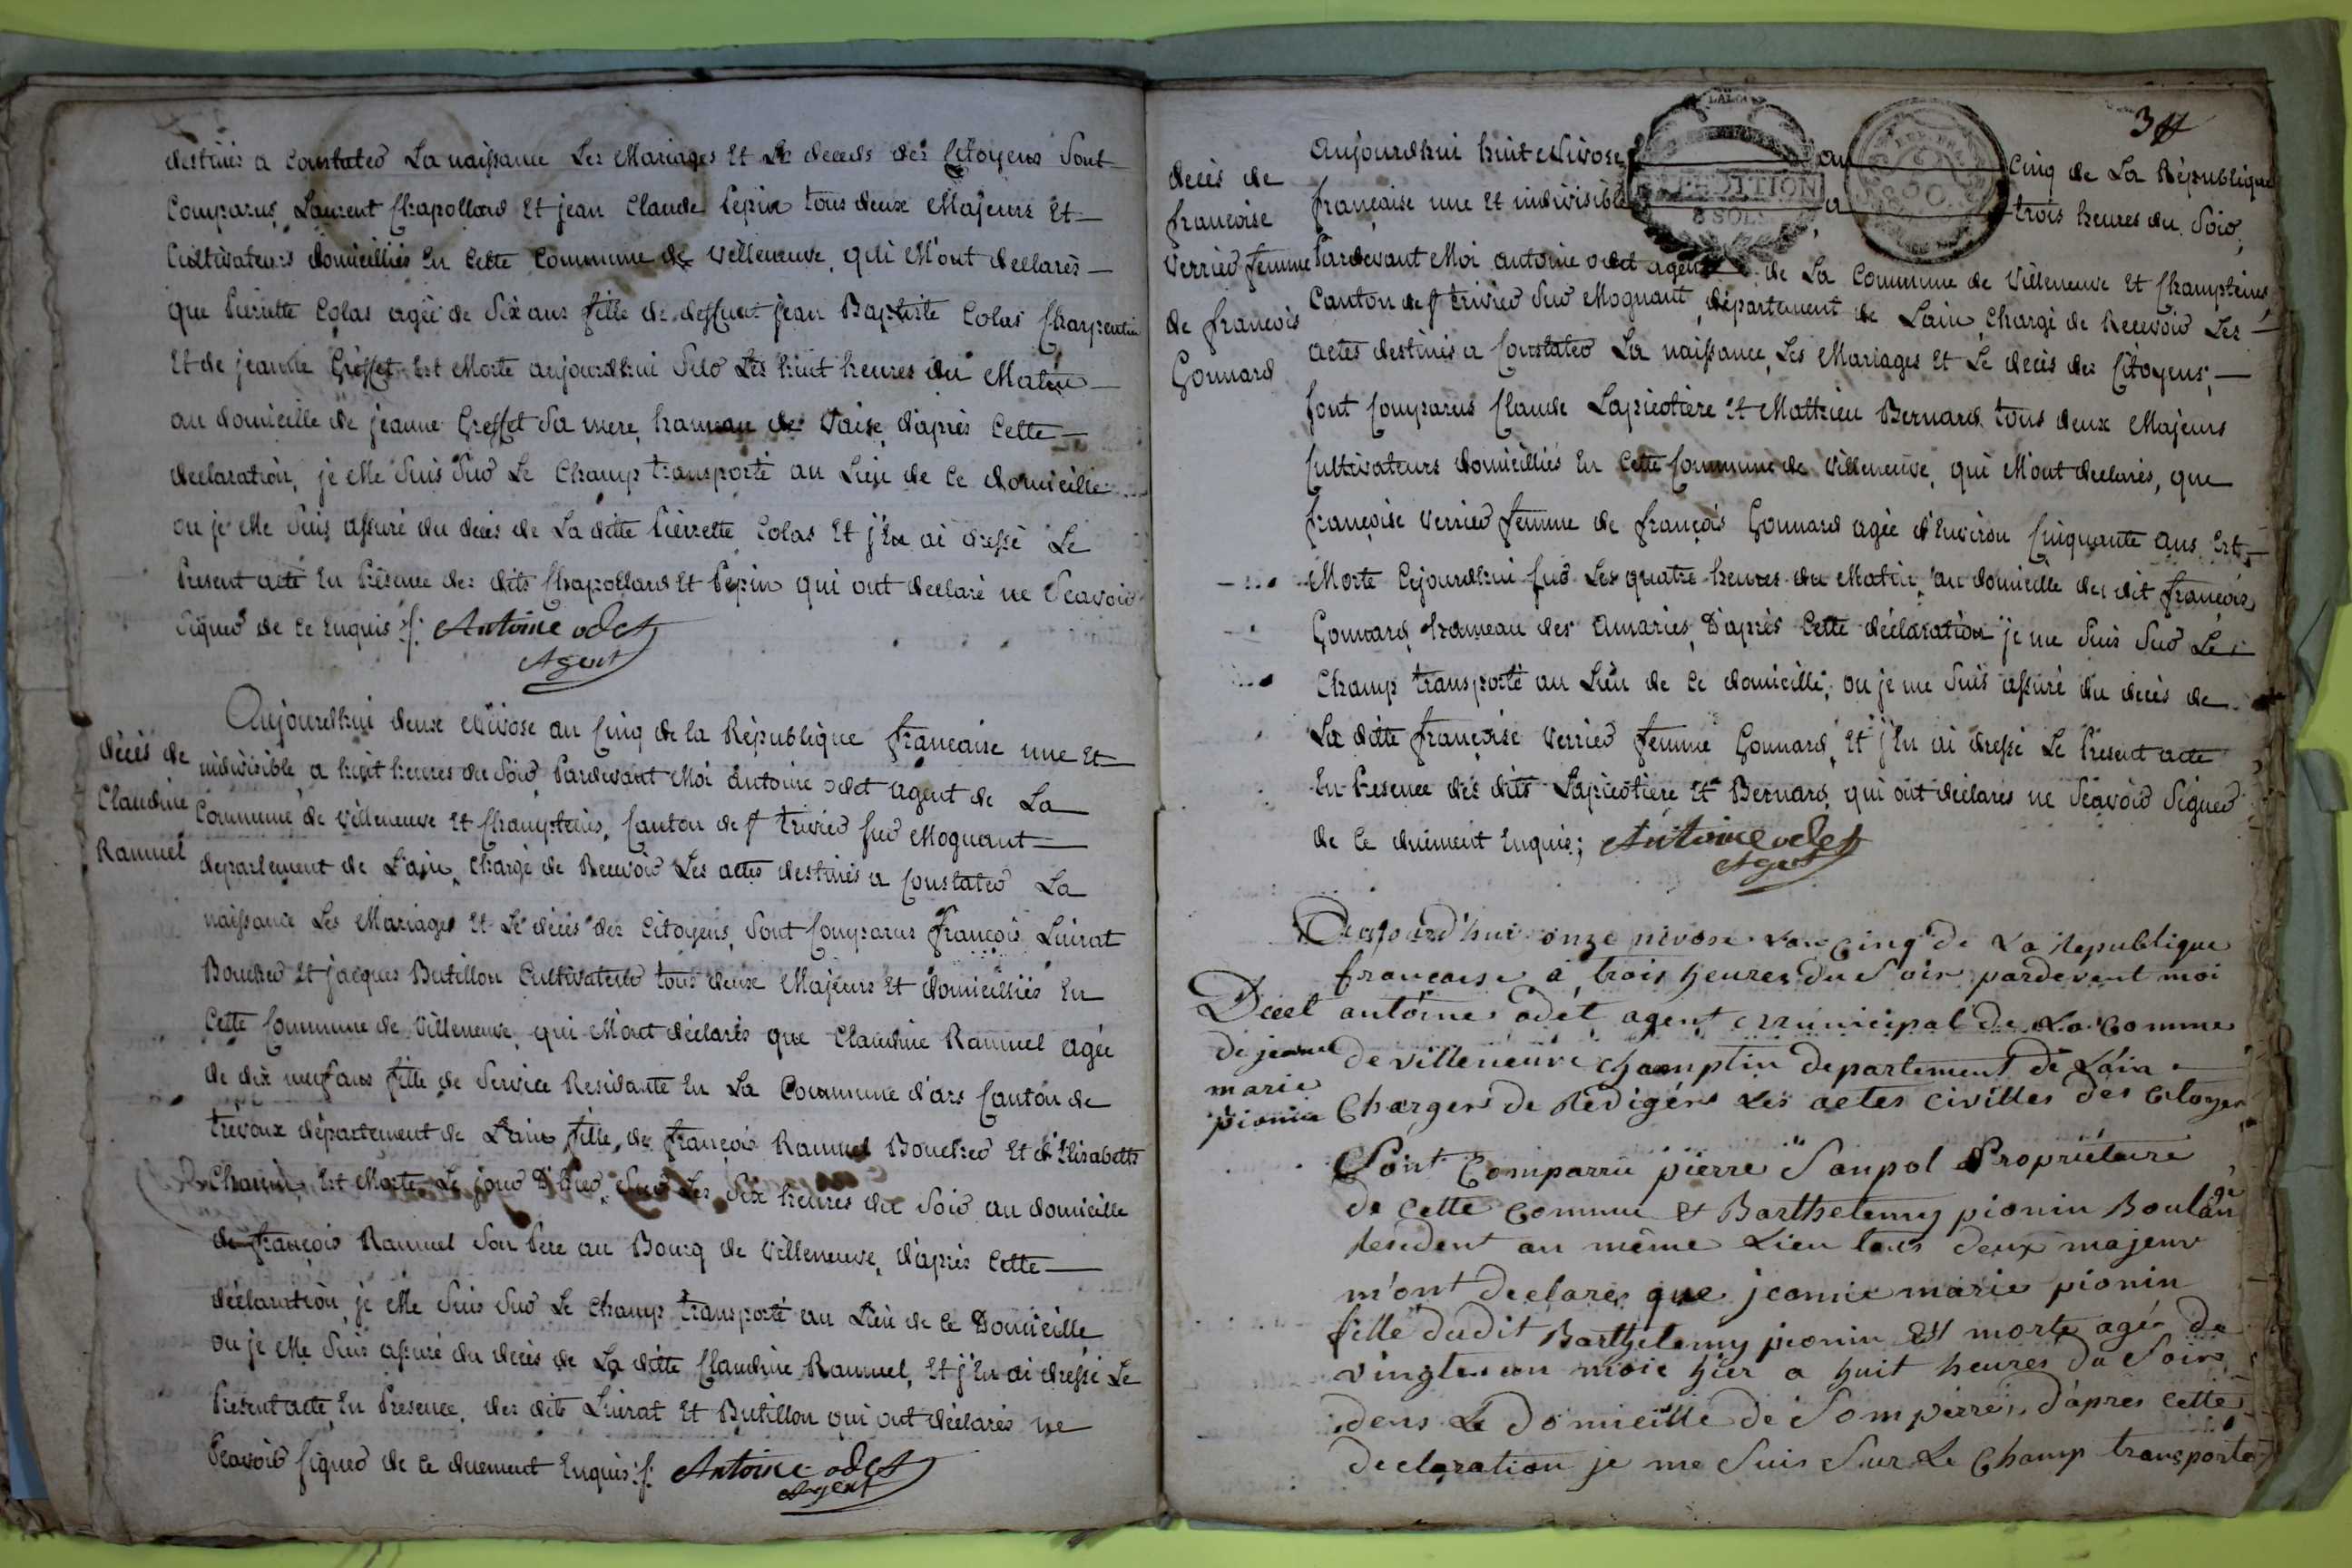 destinés a Constater La naissance Les Mariages Et Le deceds des Citoyens Sont
Comparus Laurent Chapollard Et jean Claude Pepin tous deux Majeurs Et
Cultivateurs domicilliés En Cette Commune de Villeneuve, qui M'ont declarés
que Pierrette Colas agée de Six ans fille de deffunt jean Baptiste Colas Charpentier
Et de jeanne Greffet Est Morte aujourdhui Sur Les huit heures du Matin
au domicille de jeanne Greffet Sa mere, hameau de Vaise, d'après Cette
declaration, je Me Suis Sur Le Champ transporté au Lieu de Ce domicille
ou je Me Suis assuré du decès de La ditte Pierrette Colas Et j'En ai dressé Le
Present acte En Présence des dits Chapollard Et Pepin qui ont declaré ne Scavoir
Signer de Ce Enquis ./. Antoine odet
Agent
Aujourdhui deux Nivose an Cinq de la République francaise une Et
décès de
Claudine
Ramuel
indivisible, a huit heures du Soir, Pardevant Moi antoine odet agent de La
Commune de Villeneuve Et Champteins, Canton de St trivier Sur Mognant
departement de L'ain, Chargé de Recevoir Les actes destinés a Constater La
naissance Les Mariages Et Le décès des Citoyens, Sont Comparus François Luirat
Boucher Et jacques Butillon Cultivateur tous deux Majeurs Et domicilliés En
Cette Commune de Villeneuve, qui M'ont déclarés que Claudine Ramuel agée
de dix neuf ans fille de Service Residante En La Commune d'ars Canton de
trévoux département de L'ain fille de françois Ramuel Boucher Et d'Elisabetts
Chanin, Est Morte Le jour D'hier, Sur Les Six heures du Soir au domicille
de françois Ramuel Son Pere au Bourg de Villeneuve, d'après Cette
déclaration je Me Suis Sur Le Champ transporté au Lieu de Ce Domicille
ou je Me Suis assuré du decès de La ditte Claudine Ramuel, Et j'En ai dressé Le
Present acte, En Presence, des dits Luirat Et Butillon qui ont déclarés ne
Scavoir Signer de Ce duement Enquis ./. Antoine odet
Agent
3
EXPEDITION
8 SOLS
decès de
francoise
Verrier femme
de francois
Gonnard
Aujourdhui huit Nivose, an Cinq de La République
française une Et indivisible a trois heures du Soir,
Pardevant Moi antoine odet agent de La Commune de Villeneuve Et Champteins
Canton de St trivier Sur Mognant, département de L'ain, Chargé de Recevoir Les
actes destinés a Constater La naissance, Les Mariages Et Le decès des Citoyens,
Sont Comparus Claude Lapierotiere Et Matthieu Bernard tous deux Majeurs
Cultivateurs domicilliés En Cette Commune de Villeneuve, qui M'ont declarés, que
françoise Verrier femme de françois Gonnard agée d'Environ Cinquante ans Est
Morte Cejourdhui Sur Les quatre heures du Matin, au domicille du dit francois
Gonnard, hameau des amaries, D'après Cette déclaration je me Suis Sur Le
Champ transporté au Lieu de Ce domicille, ou je me Suis assuré du decès de
La ditte françoise Verrier femme Gonnard, Et j'En ai dressé Le Present acte
En Presence des dits Lapierotiere Et Bernard, qui ont déclarés ne Scavoir Signer
de Ce duement Enquis; Antoine odet
Agent
Decet
de jeanne
marie
pionin
Aujourd'hui onze nivose Lan Cinq de La Republique
francaise a trois heures Du Soir pardevent moi
antoine odet agent Municipal De La Comme
de villeneuve Champtin Departement De Lain
Charger De Redigér Les actes civilles des citoyen
Sont Comparru pierre Sanpol Propriétaire
de cette Commu & Barthelemy pionin Boulan
resident au même Lieu tous deux majeur
m'ont declarés que jeanne marie pionin
fille dudit Barthelemy pionin Est morte agée de
vingteun mois hier a huit heures du Soir
dens Le Domicille de Sompere, d'apres cette
declaration je me Suis Sur Le Champ transporté